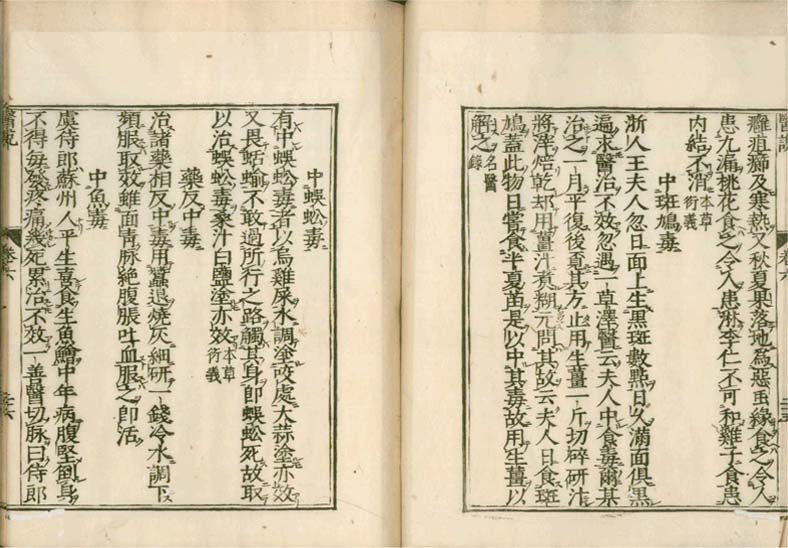 醫說
卷六
癰疽癤及寒熱又秋夏果落地爲惡虫緣食之令人
患九漏桃花食之令人患淋李仁不可和雞子食患
内結不消 本草衍義
中斑鳩毒
浙人王夫人忽日面上生黑斑數點日久滿面俱黑
遍求醫治不效忽遇一草澤醫云夫人中食毒爾某
治之一月平復後覓其方止用生薑一斤切碎研汁
將滓焙乾却用薑汁煑糊元問其故云夫人日食斑
鳩蓋此物日嘗食半夏苗是以中其毒故用生薑以
解之 名醫錄
中蜈蚣毒
有中蜈蚣毒者以烏雞屎水調塗咬處大蒜塗亦效
又畏蛞蝓不敢過所行之路觸其身即蜈蚣死故取
以治蜈蚣毒桑汁白鹽塗亦效 本草衍義
藥反中毒
治諸藥相反中毒用蠶退燒灰細研一錢冷水調下
頻服取效雖面青脉絶腹脹吐血服之即活
中魚毒
虞侍郎蘇州人平生喜食生魚鱠中年病腹堅倒身
不得每發疼痛幾死累治不效一善醫切脉曰侍郎
醫說
卷六